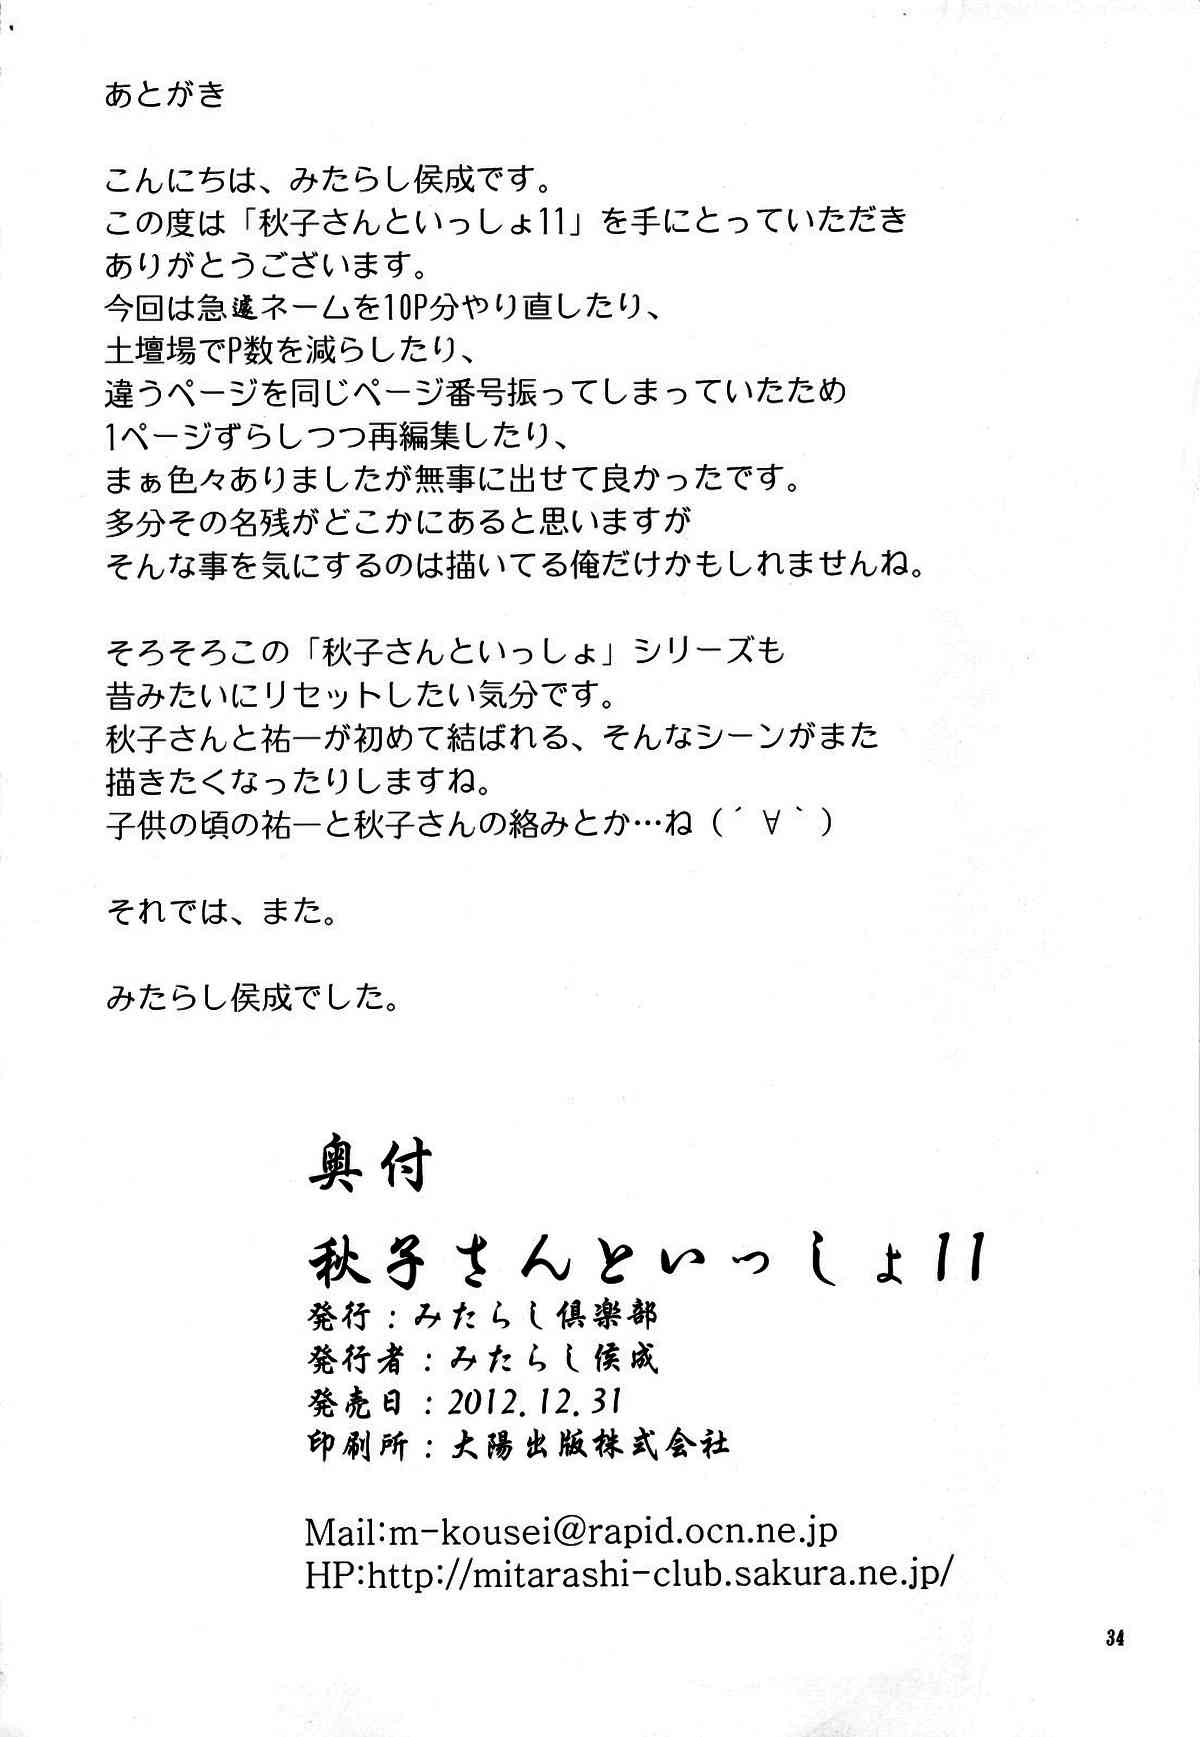 あとがき
こんにちは、みたらし侯成です。
この度は「秋子さんといっしょ11」を手にとっていただき
ありがとうございます。
今回は急遽ネームを10P分やり直したり、
土壇場でP数を減らしたり、
違うページを同じページ番号振ってしまっていたため
1ページずらしつつ再編集したり、
まぁ色々ありましたが無事に出せて良かったです。
多分その名残がどこかにあると思いますが
そんな事を気にするのは描いてる俺だけかもしれませんね。
そろそろこの「秋子さんといっしょ」シリーズも
昔みたいにリセットしたい気分です。
秋子さんと祐一が初めて結ばれる、そんなシーンがまた
描きたくなったりしますね。
子供の頃の祐一と秋子さんの絡みとか…ね（´∀｀）
それでは、また。
みたらし侯成でした。
奥付
秋子さんといっしょ11
発行：みたらし倶楽部
発行者：みたらし侯成
発売日：2012.12.31
印刷所：大陽出版株式会社
Mail:m-kousei@rapid.ocn.ne.jp
HP:http://mitarashi-club.sakura.ne.jp/
34